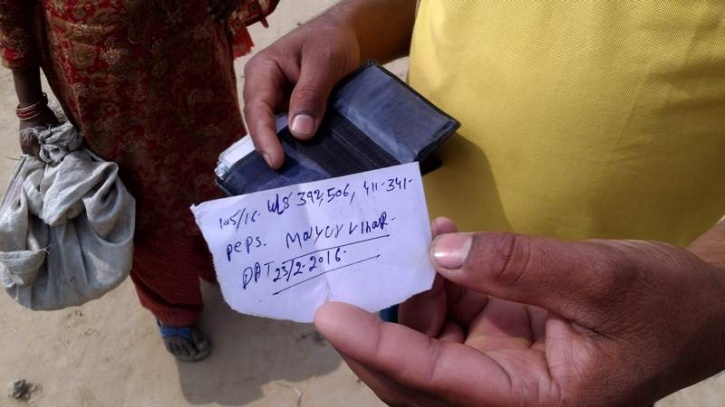 105/16- U/S 392,506, 411-341-
PePs. Mayur Vihar-
DAT 25/2-2016-